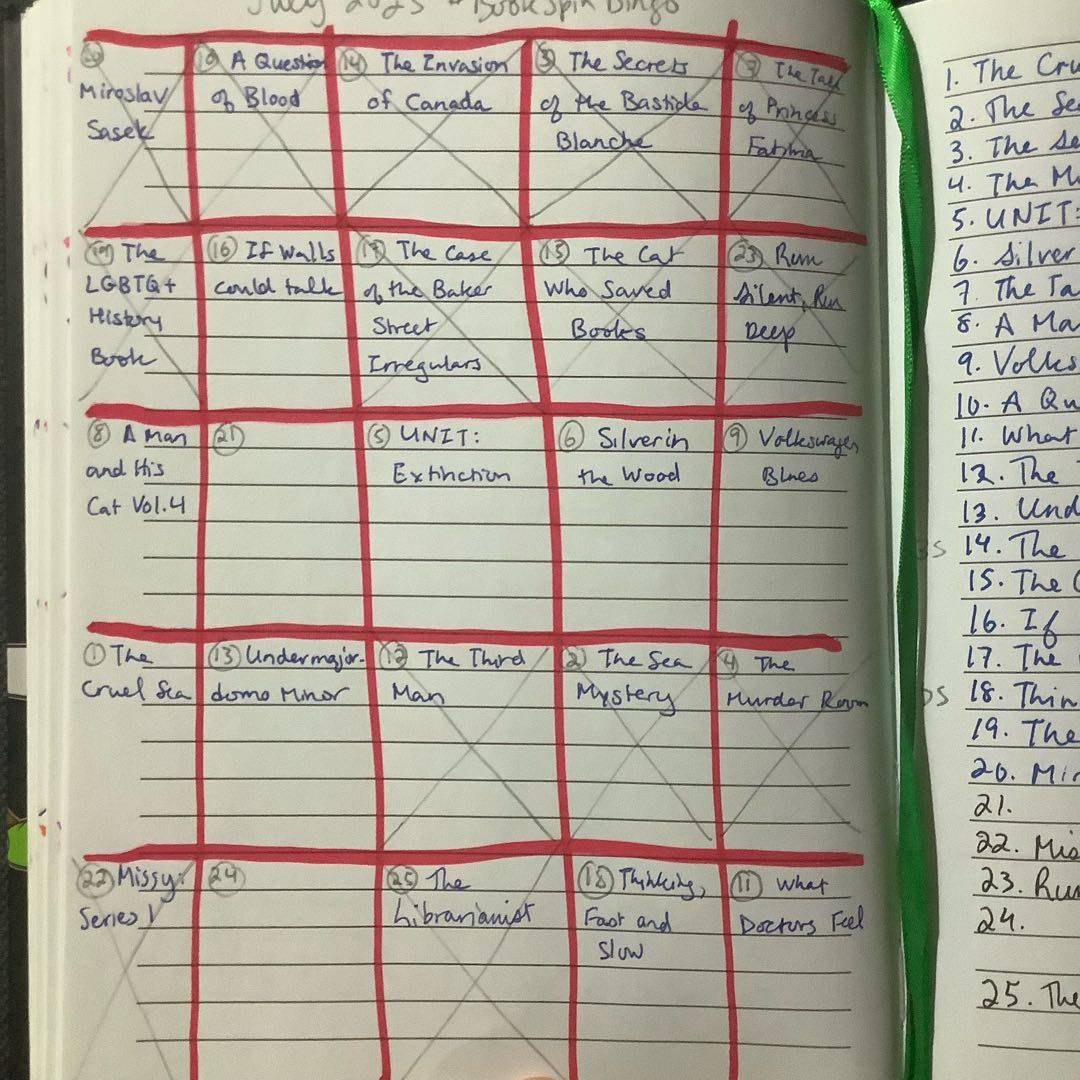 July 2023 #BookSpinBingo
20 Miroslav Sasek
10 A Question
of Blood
14 The Invasion
of Canada
3 The Secrets
of the Bastide
Blanche
7 The Tale
of Princess
Fatima
19 The
LGBTQ+
History
Book
16 If Walls
could talk
17 The Case
of the Baker
Street
Irregulars
15 The Cat
Who Saved
Books
23 Run
Silent, Run
Deep
8 A Man
and His
Cat Vol.4
21
5 UNIT:
Extinction
6 Silver in
the Wood
9 Volkswagen
Blues
1 The
Cruel Sea
13 Undermajor-
domo Minor
12 The Third
Man
2 The Sea
Mystery
4 The
Murder Room
22 Missy:
Series 1
24
25 The
Librarianist
18 Thinking,
Fast and
Slow
11 What
Doctors Feel
1. The Cru
2. The Se
3. The Se
4. The Mu
5. UNIT:
6. Silver
7. The Ta
8. A Ma
9. Volks
10. A Qu
11. What
12. The T
13. Und
BS 14. The
15. The C
16. If
17. The
DS 18. Thin
19. The
20. Mir
21.
22. Mis
23. Run
24.
25. The